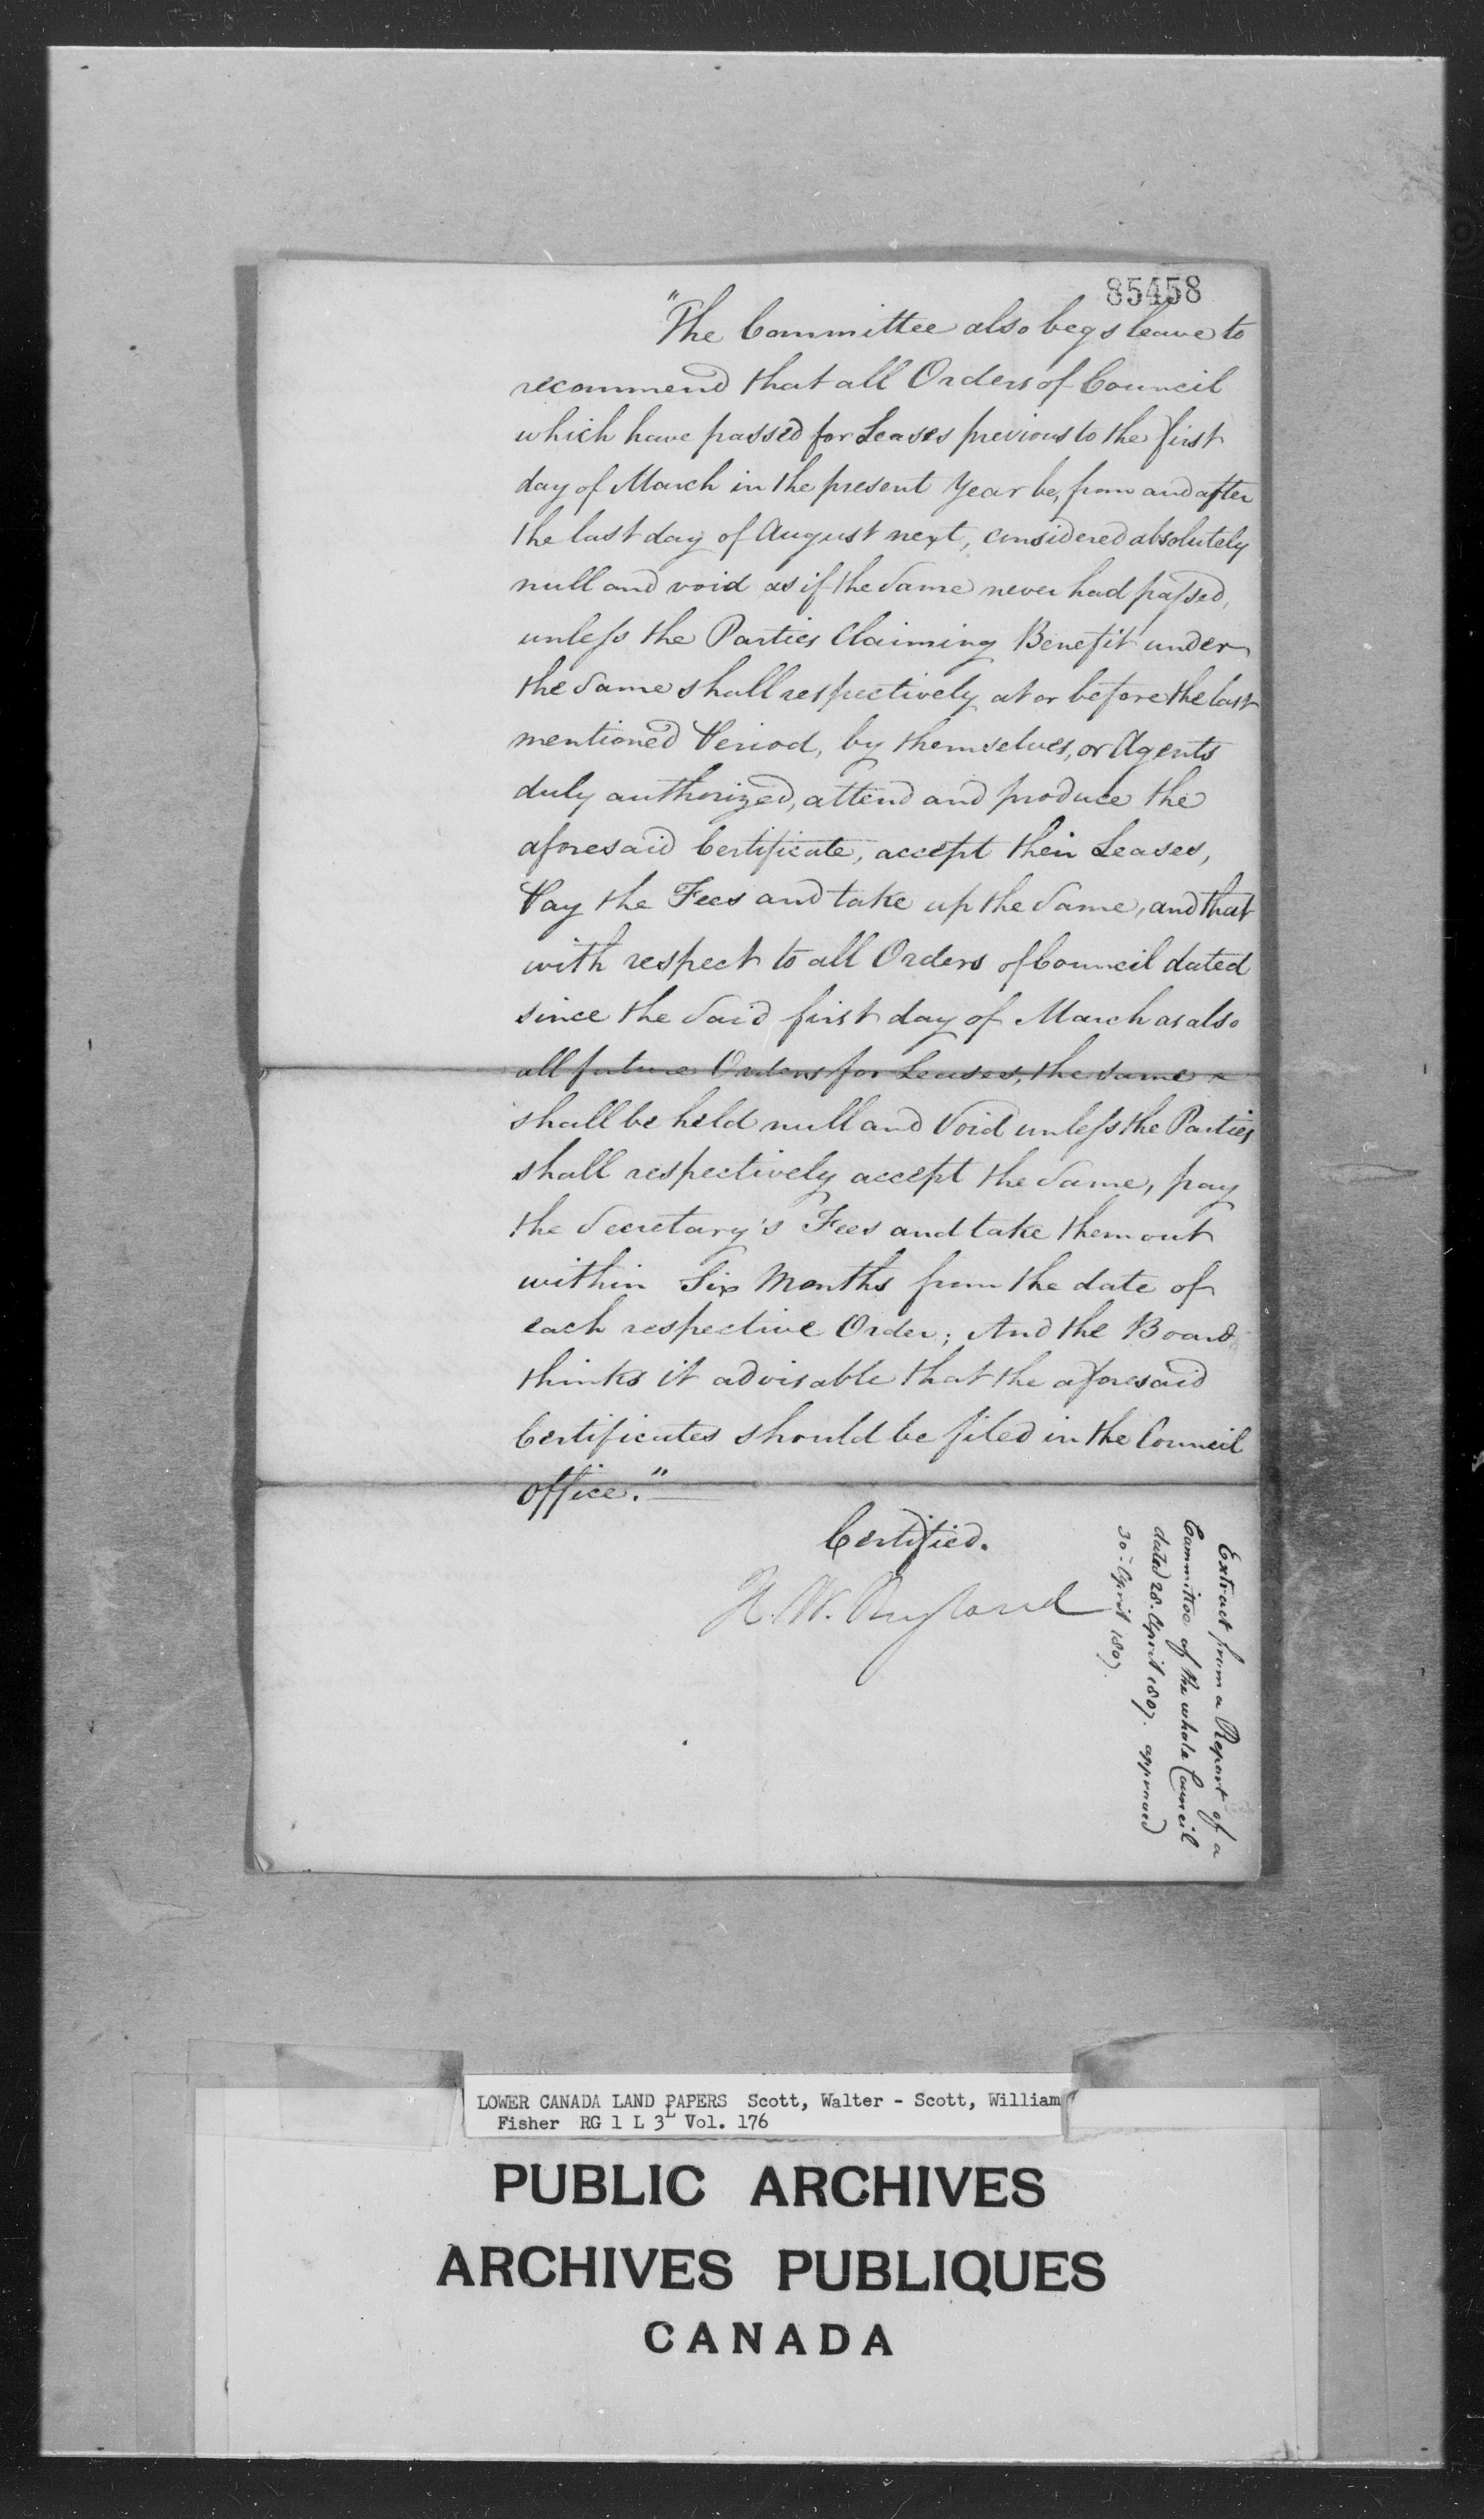 85458
"The Committee also begs leave to
recommend that all Orders of Council
which have passed for Leases previous to the first
day of March in the present Year be, from and after
the last day of August next, considered absolutely
null and void as if the Same never had passed,
unless the Parties Claiming Benefit under
the Same shall respectively at or before the last
mentioned Period, by themselves, or Agents
duly authorized, attend and produce the
aforesaid Certificate, accept their Leases,
Pay the Fees and take up the Same, and that
with respect to all Orders of Council dated
since the Said first day of March as also
all future Orders for Leases, the same
shall be held null and Void unless the Parties
shall respectively accept the Same, pay
the Secretary's Fees and take them out
within Six Months from the date of
each respective Order; And the Board
thinks it advisable that the aforesaid
Certificates should be filed in the Council
Office."
Certified.
H. W. Ryland
Extract from a Report of a
Committee of the whole Council
dated 28. April 1807. approved
30. April 1807.
LOWER CANADA LAND PAPERS Scott, Walter - Scott, William
Fisher RG 1 L 3L Vol. 176
PUBLIC ARCHIVES
ARCHIVES PUBLIQUES
CANADA